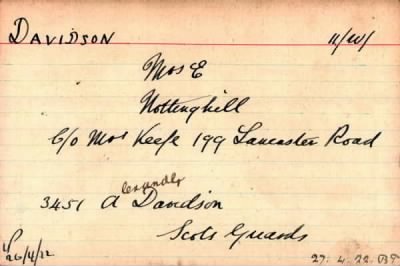 DAVIDSON 11/W/
Mrs E
Nottinghill
C/o Mrs Keefe 199 Lancaster Road
exander
3451 A Davidson
Scots Guards
26/4/22 27.4.22